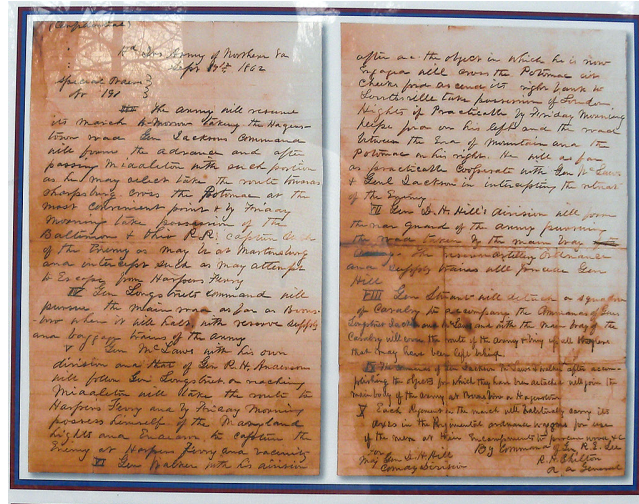 (Confidential)
Hd Qrs Army of Northern Va
Sept 9th 1862
Special Orders
No 191
III The Army will resume
its march to-morrow taking the Hagers-
town road. Gen Jacksons Command
will form the advance and after
passing Middleton with such portion
as he may select take the route towards
Sharpsburg cross the Potomac at the
most convenient point & by Friday
Morning take possession of the
Baltimore & Ohio R.R. capture such
of the Enemy as may be at Martinsburg
and intercept such as may attempt
to Escape from Harpers Ferry
IV Gen Longstreets command will
pursue the main road as far as Boons-
boro where it will halt, with reserve supply
and baggage trains of the army
V Gen McLaws with his own
division and that of Gen R. H. Anderson
will follow Gen Longstreet on reaching
Middleton will take the route to
Harpers Ferry and by Friday Morning
possess himself of the Maryland
hights and Endeavor to capture the
Enemy at Harpers Ferry and vicinity
VI Gen Walker with his division
after acc the object in which he is now
Engaged will cross the Potomac at
Cheeks ford ascend its right bank to
Lovettsville take possession of Loudon
Hights if Practicable by Friday Morning
Keys ford on his left and the road
between the End of Mountain and the
Potomac on his right. He will as far
as practicable Cooperate with Gen McLaws
& Genl Jackson in intercepting the retreat
of the Enemy
VII Gen D. H. Hill's division will form
the rear guard of the army pursuing
the road taken by the main body
The reserve artillery Ordnance
and supply trains will precede Gen
Hill
VIII Gen Stuart will detach a squadron
of Cavalry to accompany the Commands of Gen
Longstreet Jackson and McLaws and with the main body of the
Cavalry will cover the route of the Army & bring up all stragglers
that may have been left behind
IX The commands of Gen Jackson McLaws & Walker after accom-
plishing the objects for which they have been detached will join the
main body of the army at Boonsboro or Hagerstown
X Each Regiment on the march will habitually carry its
axes in the Regimental ordnance wagons for use
of the men at their Encampments to procure wood &c
By Command of Gen R. E. Lee
For
Maj Gen D. H. Hill R. H. Chilton
Comdg Division A A General